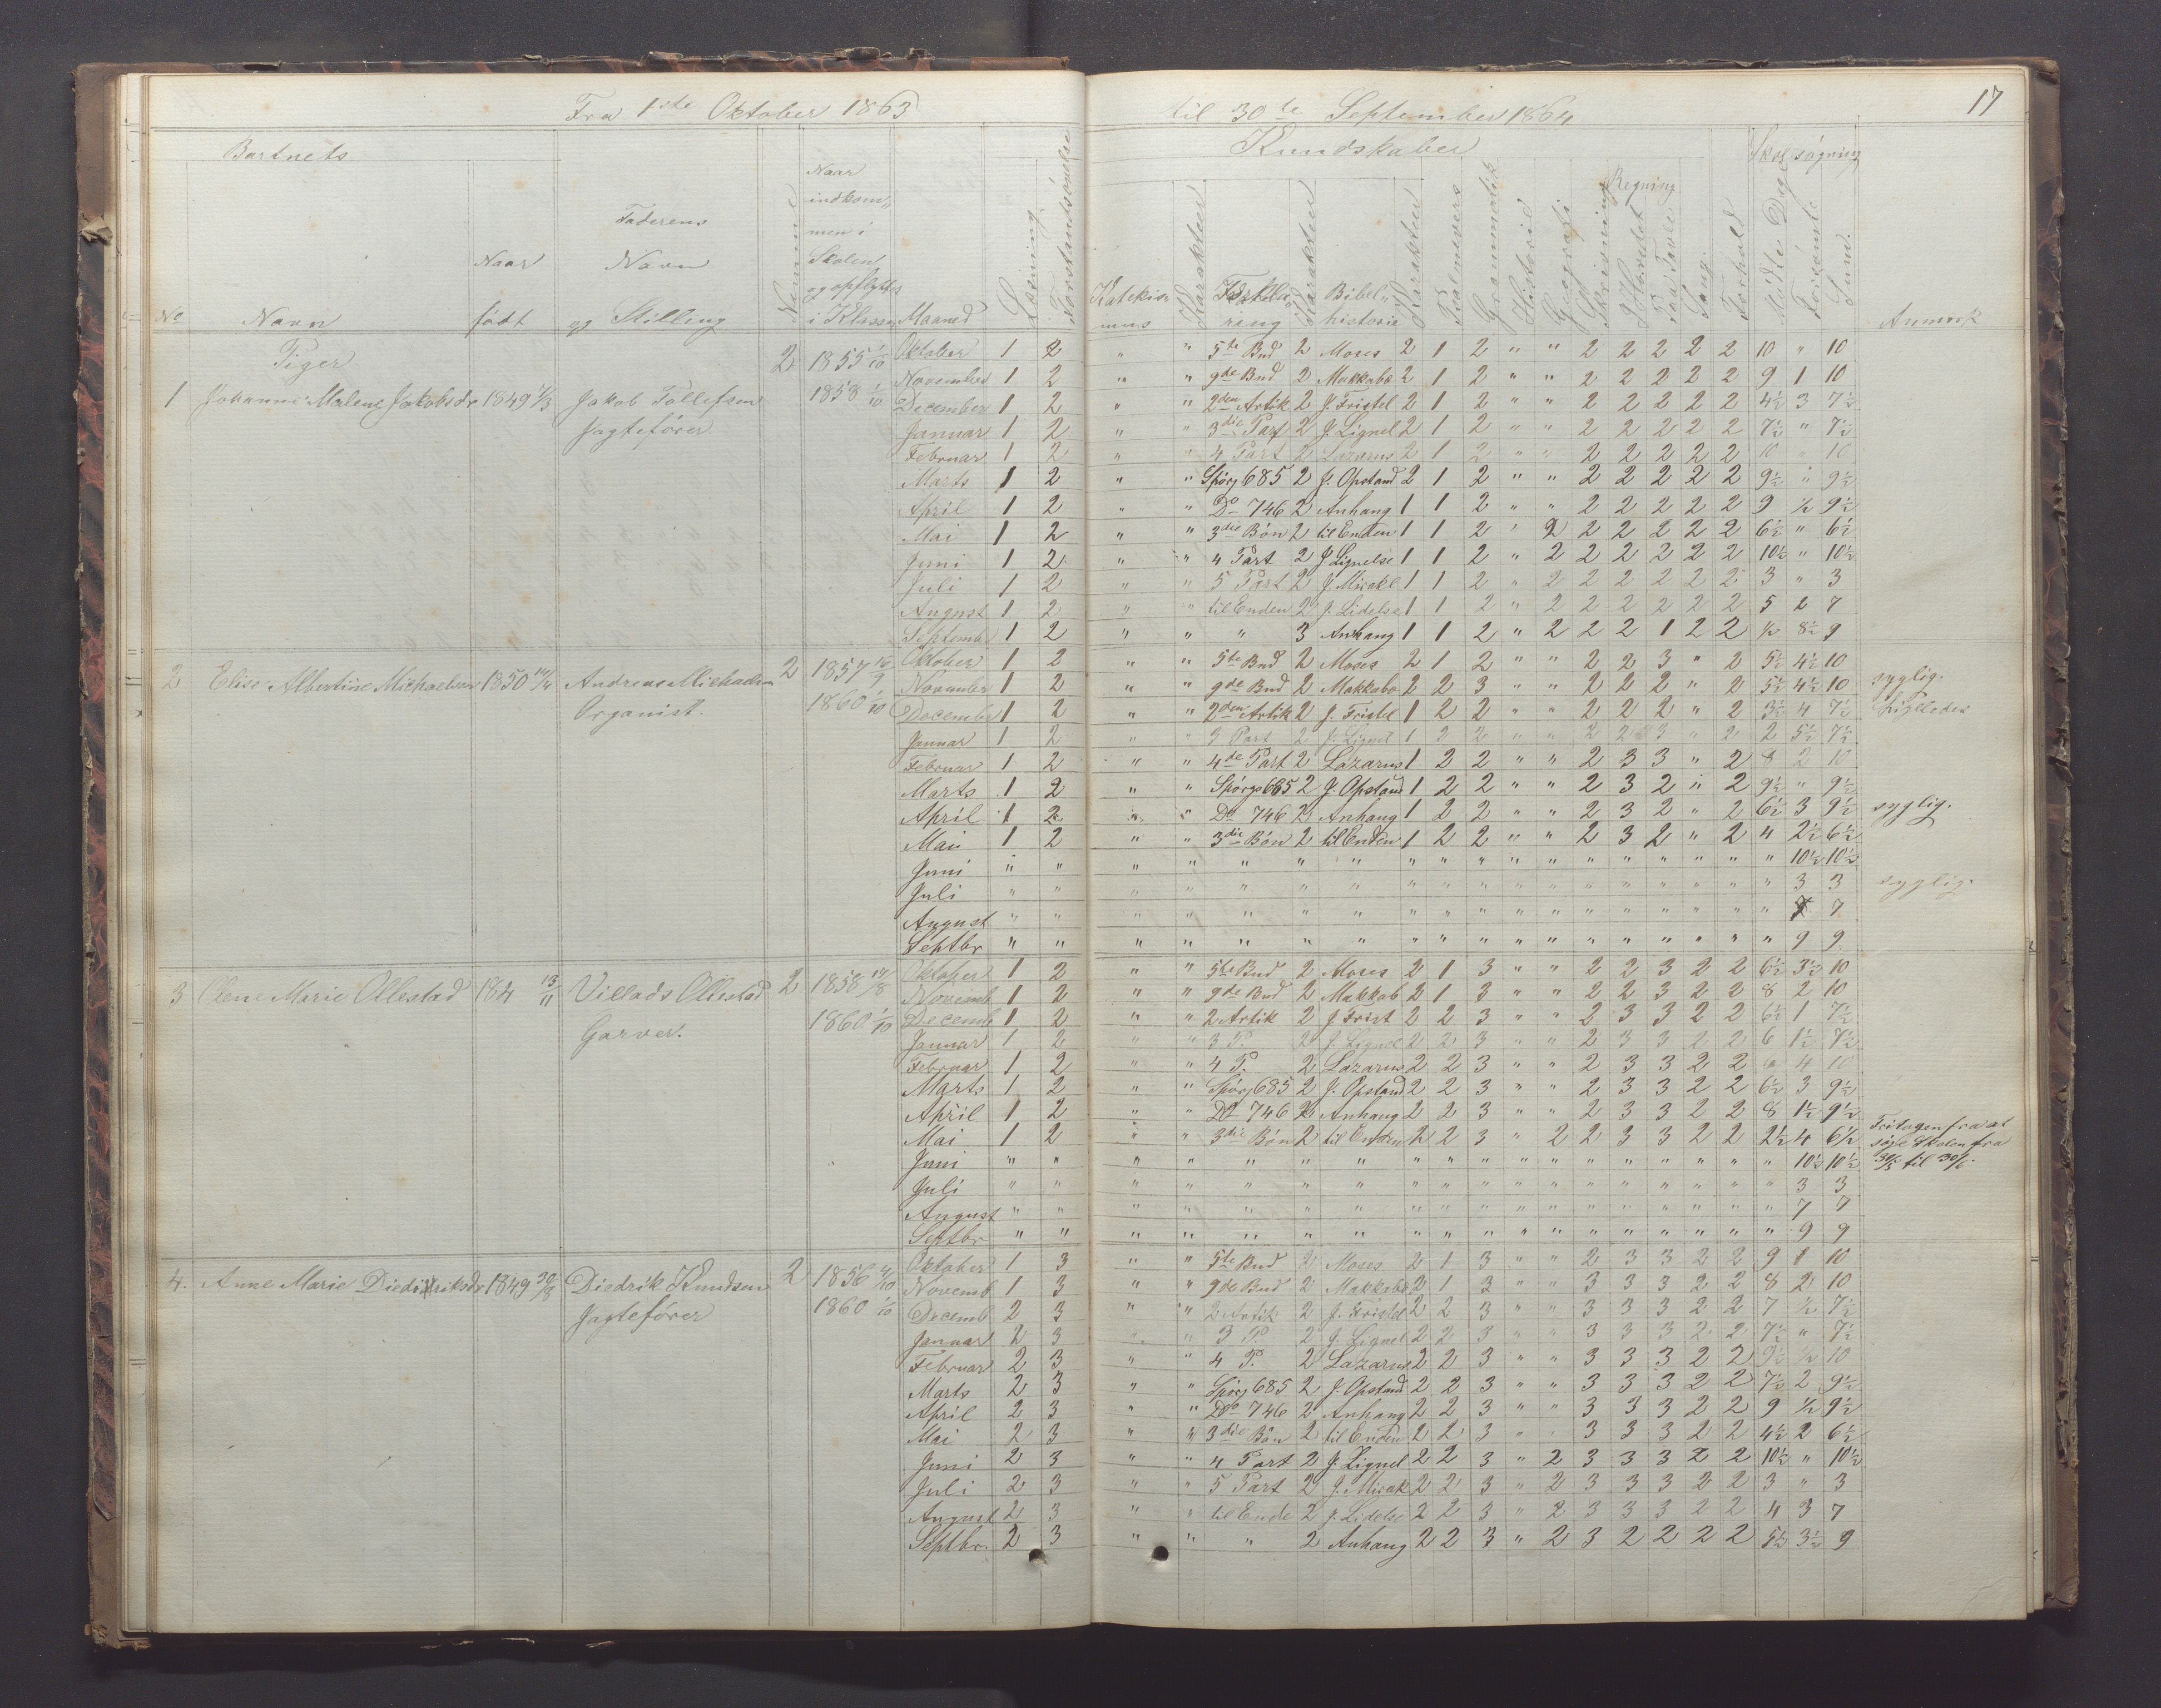 Fra 1ste Oktober 1863 til 30te September 1864 17
Barnets Kundskaber Skolesøgning
No Navn Naar født Faderens Navn og Stilling Nummer Naar indkommen i Skolen og opflyttes i Klasse Maaned Læsning Forstandsøvelse Katekismus Karakter Forklaring Karakter Bibelhistorie Karakter Psalmevers Grammatik Historie Geografi Skrivning Regning I Hovedet Paa Tavle Sang Forhold Mødte Dage Forsømte Sum. Anmærk
Piger 2 1855 1/10 Oktober 1 2 " " 5te Bud 2 Moses 2 1 2 " " 2 2 2 2 2 10 " 10
1 Johanne Malene Jakobsdr 1849 1/3 Jakob Tollefsen 1858 1/10 November 1 2 " " 9de Bud 2 Makkabæ 2 1 2 " " 2 2 2 2 2 9 1 10
Jagtefører December 1 2 " " 2den Artik 2 J. Fristel 2 1 2 " " 2 2 2 2 2 4½ 3 7½
Januar 1 2 " " 3die Part 2 J. Lignel 2 1 2 " " 2 2 2 2 2 7½ " 7½
Februar 1 2 " " 4 Part 2 Lazarus 2 1 2 " " 2 2 2 2 2 10 " 10
Marts 1 2 " " Spörg 685 2 J. Opstand 2 1 2 " " 2 2 2 2 2 9½ " 9½
April 1 2 " " Do 746 2 Anhang 1 1 2 " " 2 2 2 2 2 9 ½ 9½
Mai 1 2 " " 3die Bøn 2 til Enden 1 1 2 " 2 2 2 2 2 2 6½ " 6½
Juni 1 2 " " 4 Part 2 J. Lignelse 1 1 2 " 2 2 2 2 2 2 10½ " 10½
Juli 1 2 " " 5 Part 2 J. Mirakl 1 1 2 " 2 2 2 2 2 2 3 " 3
August 1 2 " " til Enden 2 J. Lidelse 1 1 2 " 2 2 2 2 2 2 5 2 7
Septembr 1 2 " " " 3 Anhang 1 1 2 " 2 2 2 1 2 2 ½ 8½ 9
2 Elise Albertine Michaelsen 1850 14/4 Andreas Michaelsen 2 1857 16/9 Oktober 1 2 " " 5te Bud 2 Moses 2 1 2 " " 2 2 3 " 2 5½ 4½ 10
Organist. 1860 1/10 November 1 2 " " 9de Bud 2 Makkabæ 2 2 3 " " 2 2 2 " 2 5½ 4½ 10 syglig.
Decembr 1 2 " " 2den Artik 2 J. Fristel 1 2 2 " " 2 2 2 " 2 3½ 4 7½ ligeledes
Januar 1 2 " " 3 Part 2 J. Lignel 1 2 2 " " 2 2 3 " 2 2 5½ 7½
Februar 1 2 " " 4de Part 2 Lazarus 1 2 2 " " 2 3 3 " 2 8 2 10
Marts 1 2 " " Spörgs 685 2 J. Opstand 1 2 2 " " 2 3 2 " 2 9½ " 9½
April 1 2 " " Do 746 2 Anhang 1 2 2 " " 2 3 2 " 2 6½ 3 9½ syglig.
Mai 1 2 " " 3die Bön 2 til Enden 1 2 2 " " 2 3 2 " 2 4 2½ 6½
Juni " " " " " " " " " " " " " " " " " " 10½ 10½
Juli " " " " " " " " " " " " " " " " " " 3 3 syglig.
August " " " " " " " " " " " " " " " " " " 7 7
Septbr " " " " " " " " " " " " " " " " " " 9 9
3 Olene Marie Ollestad 184 13/11 Villads Ollestad 2 1858 17/8 Oktober 1 2 " " 5te Bud 2 Moses 2 1 3 " " 2 2 3 2 2 6½ 3½ 10
Garver. 1860 1/10 Novemb 1 2 " " 9de Bud 2 Makkab 2 1 3 " " 2 2 3 2 2 8 2 10
Decemb 1 2 " " 2 Artik 2 J Frist 2 2 3 " " 2 3 3 2 2 6½ 1 7½
Januar 1 2 " " 3 P. 2 J. Lignel 2 2 3 " " 2 3 3 2 2 6 1½ 7½
Februar 1 2 " " 4 P. 2 Lazarus 2 2 3 " " 2 3 3 2 2 6 4 10
Marts 1 2 " " Spörg 685 2 J. Opstand 2 2 3 " " 2 3 3 2 2 6½ 3 9½
April 1 2 " " Do 746 2 Anhang 2 2 3 " " 2 3 3 2 2 8 1½ 9½
Mai 1 2 " " 3die Bön 2 til Enden 2 2 3 " 2 2 3 3 2 2 2½ 4 6½ Fritagen fra at
Juni " " " " " " " " " " " " " " " " " " 10½ 10½ søge Skolen fra
Juli " " " " " " " " " " " " " " " " " " 3 3 til
August " " " " " " " " " " " " " " " " " " 7 7
Septbr " " " " " " " " " " " " " " " " " " 9 9
4. Anne Marie Diedriksdr 1849 Diedrik Knudsen 2 1856 Oktober 1 3 " " 5te Bud 2 Moses 2 1 3 " " 2 3 3 2 2 9 1 10
Jagtefører 1860 1/10 Novemb 1 3 " " 9de Bud 2 Makkabæ 2 1 3 " " 3 3 3 2 2 8 2 10
Decemb 2 3 " " 2 Artik 2 J. Fristel 2 2 3 " " 3 3 3 2 2 7 ½ 7½
Januar 2 3 " " 3 P. 2 J. Lignel 2 2 3 " " 3 3 3 2 2 7½ " 7½
Februar 2 3 " " 4 P. 2 Lazarus 2 2 3 " " 3 3 3 2 2 9½ ½ 10
Marts 2 3 " " Spörg 685 2 J. Opstand 2 2 3 " " 3 3 3 2 2 7½ 2 9½
April 2 3 " " Do 746 2 Anhang 2 2 3 " " 3 3 3 2 2 9 ½ 9½
Mai 2 3 " " 3die Bön 2 til Enden 2 2 3 " " 3 3 3 2 2 4½ 2 6½
Juni 2 3 " " 4 Part 2 J. Lignel 2 2 3 " 2 3 3 3 2 2 10½ " 10½
Juli 2 3 " " 5 Part 2 J. Mirak 2 2 3 " 2 3 3 3 2 2 3 " 3
August 2 3 " " til Ende 2 J. Lidelse 2 2 3 " 2 3 3 3 2 2 4 3 7
Septbr. 2 3 " " " 2 Anhang 2 2 3 " 2 3 2 2 2 2 5½ 3½ 9